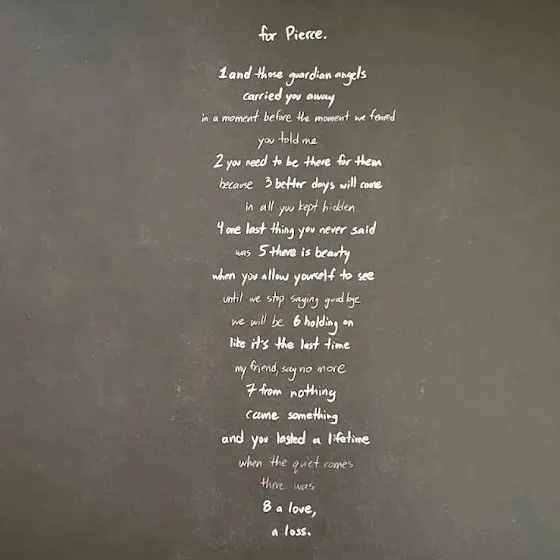 for Pierce.
1 and those guardian angels
carried you away
in a moment before the moment we feared
you told me
2 you need to be there for them
because 3 better days will come
in all you kept hidden
4 one last thing you never said
was 5 there is beauty
when you allow yourself to see
until we stop saying goodbye
we will be 6 holding on
like it's the last time
my friend, say no more
7 from nothing
came something
and you lasted a lifetime
when the quiet comes
there was
8 a love,
a loss.